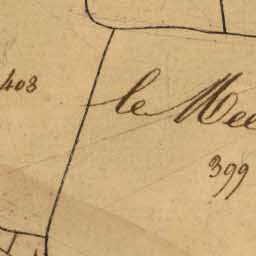 403
le Mee
399